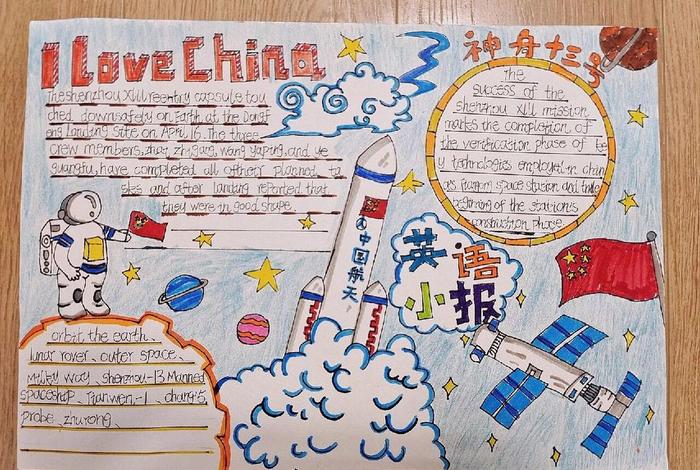 I Love China
神舟十三号
The shenzhou XIII reentry capsule tou
ched down safely on Earth at the Dongf
eng Landing Site on April 16. The three
crew members, zhai zhigang, wang yaping, and ye
guangfu, have completed all of their planned ta
sks and after landing reported that
they were in good shape
The
success of the
shenzhou XIII mission
marks the completion of
the verification phase of ke
y technologies employed in chin
as space station and
beginning of the station's
construction phase
中国航天
英语
小报
orbit the earth、
lunar rover、outer space、
milky way、shenzhou-13 Manned
spaceship、Tianwen-1、chang'5
probe、zhurong、